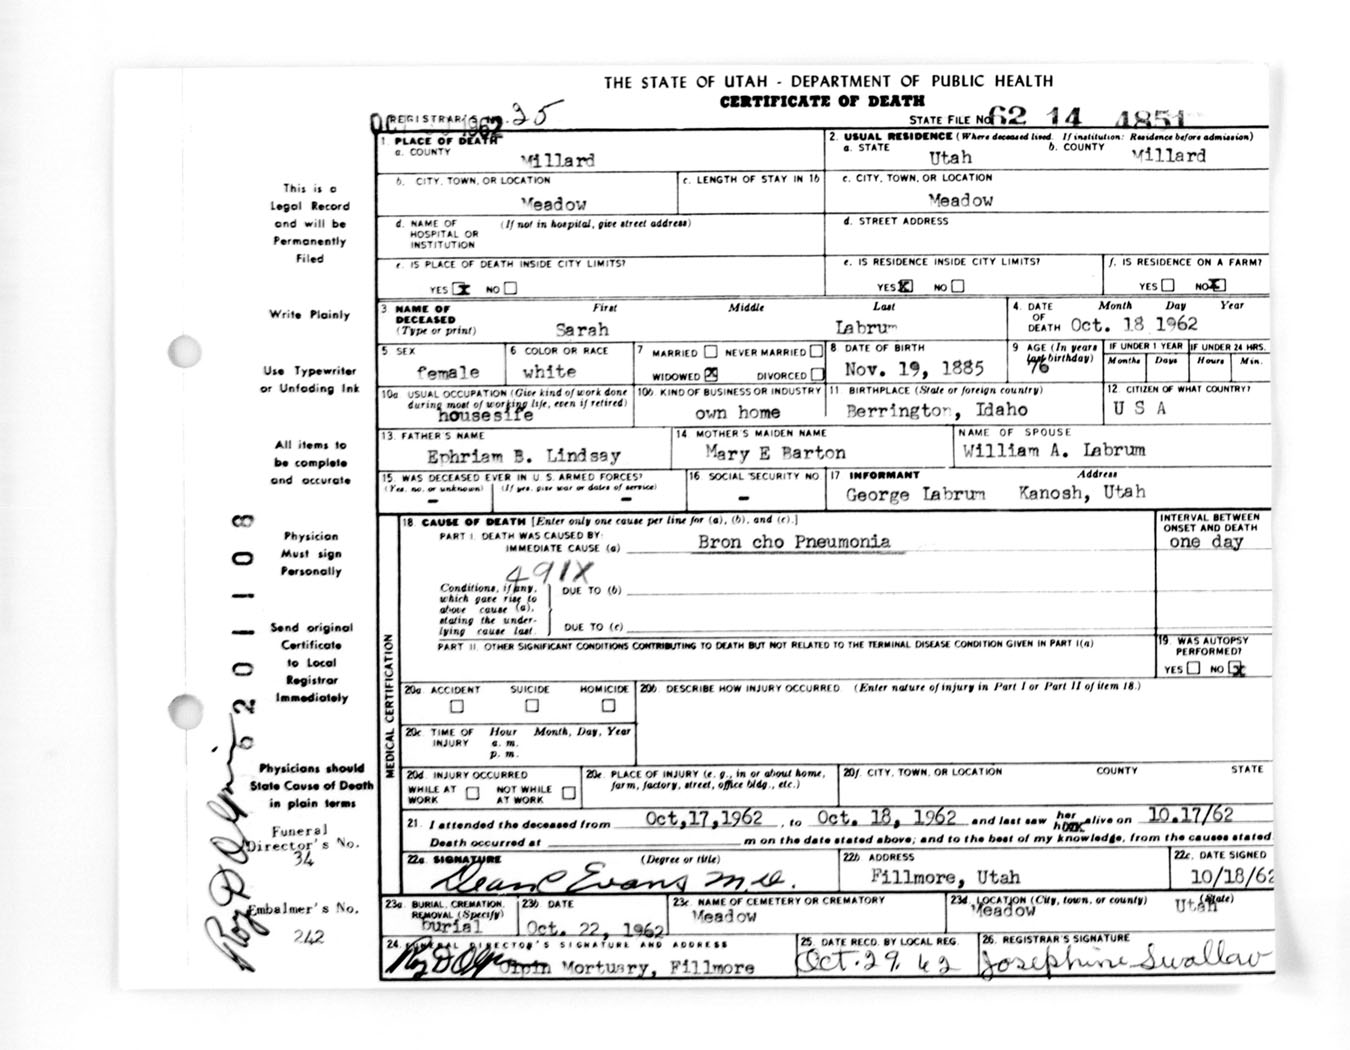 THE STATE OF UTAH - DEPARTMENT OF PUBLIC HEALTH
CERTIFICATE OF DEATH
REGISTRAR'S NO. 25
1962
STATE FILE NO. 62 14 4851
1. PLACE OF DEATH
a. COUNTY Millard
2. USUAL RESIDENCE (Where deceased lived. If institution: Residence before admission)
a. STATE Utah b. COUNTY Millard
b. CITY, TOWN, OR LOCATION Meadow
c. LENGTH OF STAY IN 1b
c. CITY, TOWN, OR LOCATION Meadow
d. NAME OF HOSPITAL OR INSTITUTION (If not in hospital, give street address)
d. STREET ADDRESS
e. IS PLACE OF DEATH INSIDE CITY LIMITS?
YES X NO
e. IS RESIDENCE INSIDE CITY LIMITS?
YES X NO
f. IS RESIDENCE ON A FARM?
YES NO X
3 NAME OF DECEASED (Type or print)
First Middle Last
Sarah Labrum
4. DATE OF DEATH Month Day Year
Oct. 18 1962
5 SEX female
6 COLOR OR RACE white
7 MARRIED NEVER MARRIED
WIDOWED X DIVORCED
8 DATE OF BIRTH Nov. 19, 1885
9 AGE (In years last birthday) 76
IF UNDER 1 YEAR Months Days
IF UNDER 24 HRS. Hours Min.
10a USUAL OCCUPATION (Give kind of work done during most of working life, even if retired)
housesife
10b KIND OF BUSINESS OR INDUSTRY own home
11 BIRTHPLACE (State or foreign country)
Berrington, Idaho
12 CITIZEN OF WHAT COUNTRY?
U S A
13. FATHER'S NAME
Ephriam B. Lindsay
14 MOTHER'S MAIDEN NAME
Mary E Barton
NAME OF SPOUSE
William A. Labrum
15. WAS DECEASED EVER IN U.S. ARMED FORCES?
(Yes, no, or unknown) (If yes, give war or dates of service)
- -
16 SOCIAL SECURITY NO
-
17 INFORMANT Address
George Labrum Kanosh, Utah
18. CAUSE OF DEATH [Enter only one cause per line for (a), (b), and (c).]
INTERVAL BETWEEN ONSET AND DEATH
PART I. DEATH WAS CAUSED BY:
IMMEDIATE CAUSE (a) Bron cho Pneumonia
one day
491X
Conditions, if any, which gave rise to above cause (a), stating the underlying cause last.
DUE TO (b)
DUE TO (c)
PART II. OTHER SIGNIFICANT CONDITIONS CONTRIBUTING TO DEATH BUT NOT RELATED TO THE TERMINAL DISEASE CONDITION GIVEN IN PART I(a)
19. WAS AUTOPSY PERFORMED?
YES NO X
MEDICAL CERTIFICATION
20a. ACCIDENT SUICIDE HOMICIDE
20b. DESCRIBE HOW INJURY OCCURRED. (Enter nature of injury in Part I or Part II of item 18.)
20c TIME OF INJURY Hour Month, Day, Year
a. m.
p. m.
20d. INJURY OCCURRED
WHILE AT WORK NOT WHILE AT WORK
20e. PLACE OF INJURY (e. g., in or about home, farm, factory, street, office bldg., etc.)
20f. CITY, TOWN, OR LOCATION COUNTY STATE
21. I attended the deceased from Oct,17,1962 , to Oct. 18, 1962 and last saw her alive on 10.17/62
Death occurred at m on the date stated above; and to the best of my knowledge, from the causes stated
22a. SIGNATURE (Degree or title)
Dean C Evans M.D.
22b. ADDRESS
Fillmore, Utah
22c. DATE SIGNED
10/18/62
23a. BURIAL, CREMATION, REMOVAL (Specify)
burial
23b. DATE
Oct. 22, 1962
23c. NAME OF CEMETERY OR CREMATORY
Meadow
23d. LOCATION (City, town, or county) (State)
Meadow Utah
24. FUNERAL DIRECTOR'S SIGNATURE AND ADDRESS
Roy D Olpin Olpin Mortuary, Fillmore
25. DATE RECD. BY LOCAL REG.
Oct. 29. 62
26. REGISTRAR'S SIGNATURE
Josephine Swallow
This is a
Legal Record
and will be
Permanently
Filed
Write Plainly
Use Typewriter
or Unfading Ink
All items to
be complete
and accurate
Physician
Must sign
Personally
Send original
Certificate
to Local
Registrar
Immediately
Physicians should
State Cause of Death
in plain terms
Funeral
Director's No.
34
Embalmer's No.
242
6201108
Roy D Olpin